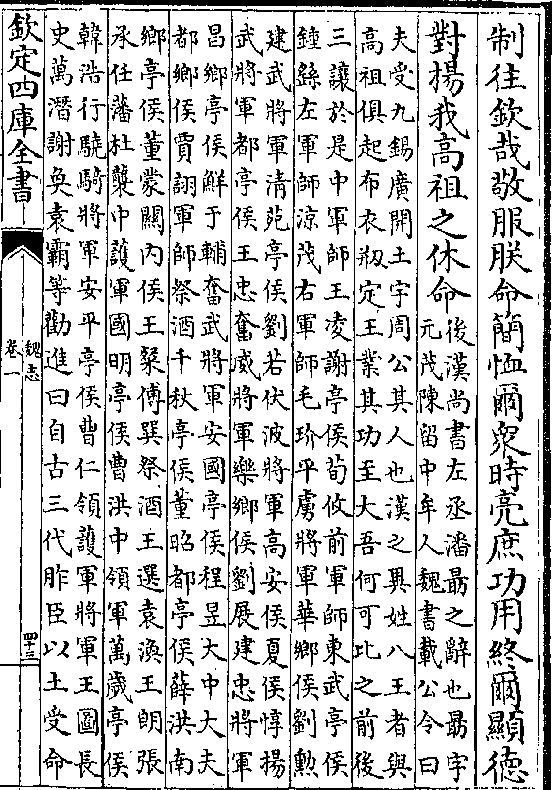 制往欽哉敬服朕命簡恤爾衆時亮庶功用終爾顯德
對揚我高祖之休命
後漢尚書左丞潘勗之辭也勗字
元茂陳留中牟人魏書載公令曰
夫受九錫廣開土宇周公其人也漢之異姓八王者與
高祖俱起布衣刱定王業其功至大吾何可比之前後
三讓於是中軍師王凌謝亭侯荀攸前軍師東武亭侯
鍾繇左軍師涼茂右軍師毛玠平虜將軍華鄉侯劉勲
建武將軍清苑亭侯劉若伏波將軍高安侯夏侯惇揚
武將軍都亭侯王忠奮威將軍樂鄉侯劉展建忠將軍
昌鄉亭侯鮮于輔奮武將軍安國亭侯程昱大中大夫
都鄉侯賈詡軍師祭酒千秋亭侯董昭都亭侯薛洪南
鄉亭侯董蒙關內侯王粲傅巽祭酒王選袁渙王朗張
承任藩杜襲中護軍國明亭侯曹洪中領軍萬歲亭侯
韓浩行驍騎將軍安平亭侯曹仁領護軍將軍王圖長
史萬潛謝奐袁霸等勸進曰自古三代胙臣以土受命
欽定四庫全書
魏志
卷一
四十三